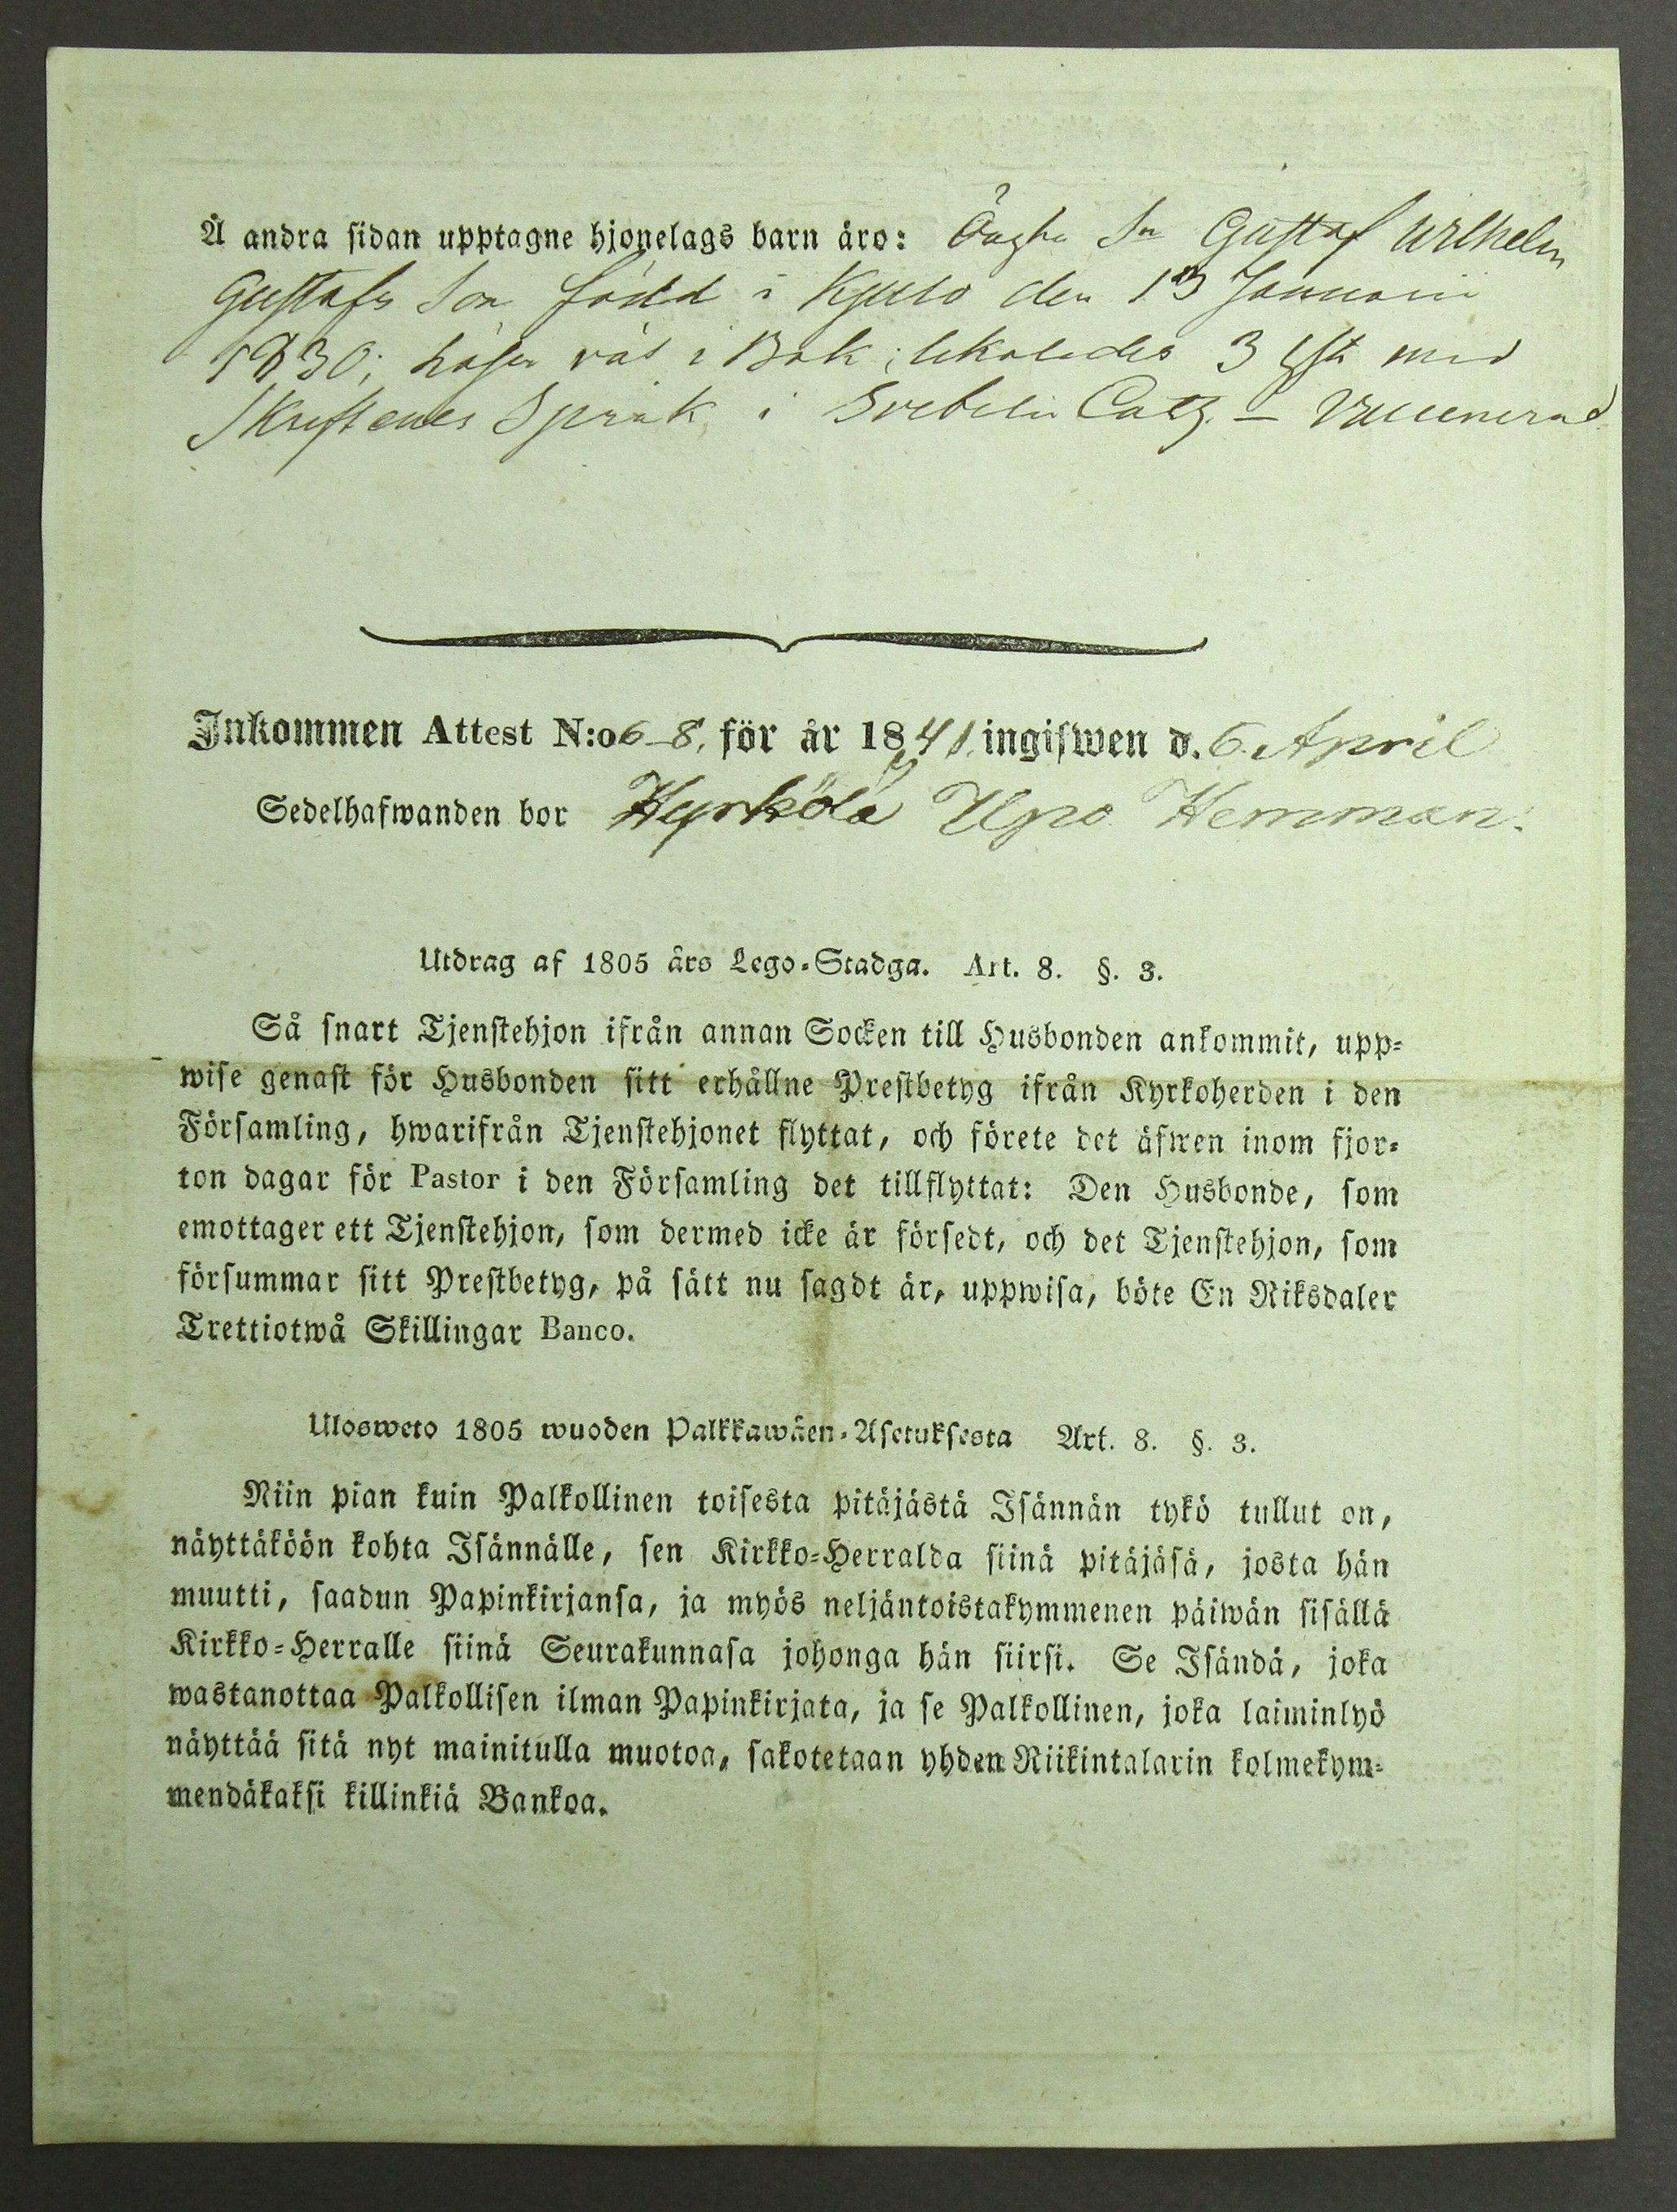 Å andra sidan upptagne hjonelags barn äro: Son Gustaf Wilhelm
Gustafs Son född i Kjulo den 13 Januarii
1830; läser väl i Bok; likaledes 3 med
Skriftenes Språk i Svebelii Catz. – Vaccinerad
Inkommen Attest N:o 6–8, för år 1841 ingifwen d. 6. April
Sedelhafwanden bor Kyrkölä Upo Hemman.
Utdrag af 1805 års Lego-Stadga. Art. 8. §. 3.
Så snart Tjenstehjon ifrån annan Socken till Husbonden ankommit, upp-
wise genast för Husbonden sitt erhållne Prestbetyg ifrån Kyrkoherden i den
Församling, hwarifrån Tjenstehjonet flyttat, och förete det äfwen inom fjor-
ton dagar för Pastor i den Församling det tillflyttat: Den Husbonde, som
emottager ett Tjenstehjon, som dermed icke är försedt, och det Tjenstehjon, som
försummar sitt Prestbetyg, på sätt nu sagdt är, uppwisa, böte En Riksdaler
Trettiotwå Skillingar Banco.
Ulosweto 1805 wuoden Palkkawäen-Asetuksesta Art. 8. §. 3.
Niin pian kuin Palkollinen toisesta pitäjästä Isännän tykö tullut on,
näyttäköön kohta Isännälle, sen Kirkko-Herralda siinä pitäjäsä, josta hän
muutti, saadun Papinkirjansa, ja myös neljäntoistakymmenen päiwän sisällä
Kirkko-Herralle siinä Seurakunnasa johonga hän siirsi. Se Isändä, joka
wastanottaa Palkollisen ilman Papinkirjata, ja se Palkollinen, joka laiminlyö
näyttää sitä nyt mainitulla muotoa, sakotetaan yhden Riikintalarin kolmekym-
mendäkaksi killinkiä Bankoa.